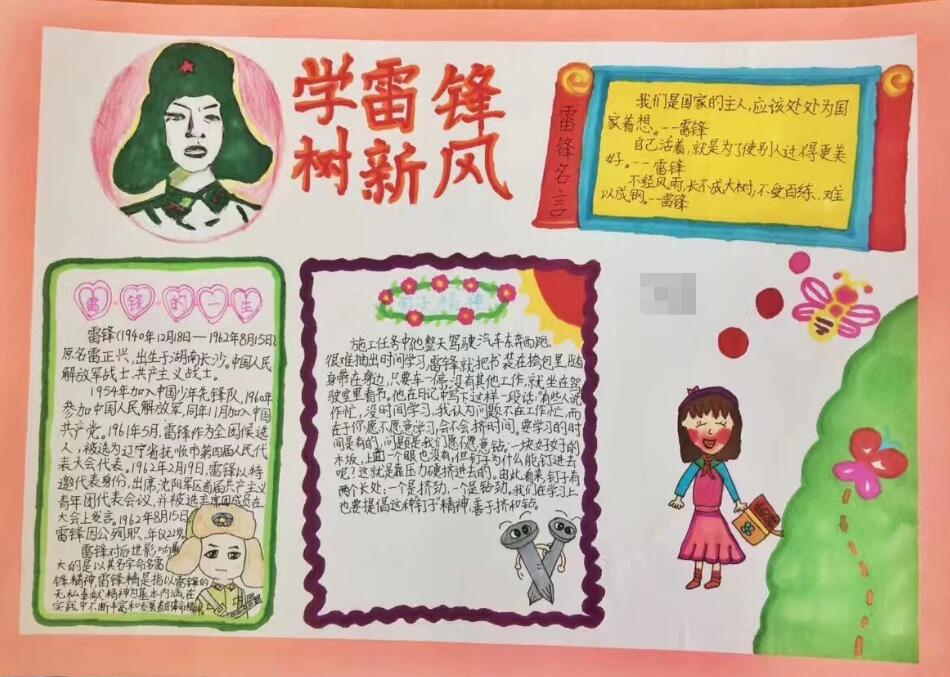 学雷锋
树新风
雷锋名言
我们是国家的主人,应该处处为国
家着想。--雷锋
自己活着,就是为了使别人过得更美
好。--雷锋
不经风雨,长不成大树,不受百练,难
以成钢。--雷锋
雷锋的一生
雷锋(1940年12月18日—1962年8月15日),
原名雷正兴,出生于湖南长沙。中国人民
解放军战士、共产主义战士。
1954年加入中国少年先锋队,1960年
参加中国人民解放军,同年11月加入中国
共产党。1961年5月,雷锋作为全团候选
人,被选为辽宁省抚顺市第四届人民代
表大会代表。1962年2月19日,雷锋以特
邀代表身份,出席沈阳军区首届共产主义
青年团代表会议,并被选主席团成员在
大会上发言。1962年8月15日
雷锋因公殉职,年仅22岁
雷锋对后世影响最
大的是以其名字命名雷
锋精神,雷锋精是指以雷锋的
无私奉献精神为基本内涵,在
实践中不断丰富和发展着的革命精
钉子精神
施工任务中,他整天驾驶汽车东奔西跑,
很难抽出时间学习,雷锋就把书装在挎包里,随
身带在身边,只要车一停,没有其他工作,就坐在驾
驶室里看书。他在日记中写下这样一段话:"有些人说
作忙,没时间学习,我认为问题不在工作忙,而
在于你愿不愿意学习,会不会挤时间。要学习的时
间是有的,问题是我们愿不愿意钻,一块好好的
木板,上面一个眼也没有,但钉子为什么能钉进去
呢?这就是靠压力硬挤进去的。由此看来,钉子有
两个长处:一个是挤劲,一个是钻劲。我们在学习上
也要提倡这种"钉子"精神,善于挤和钻。